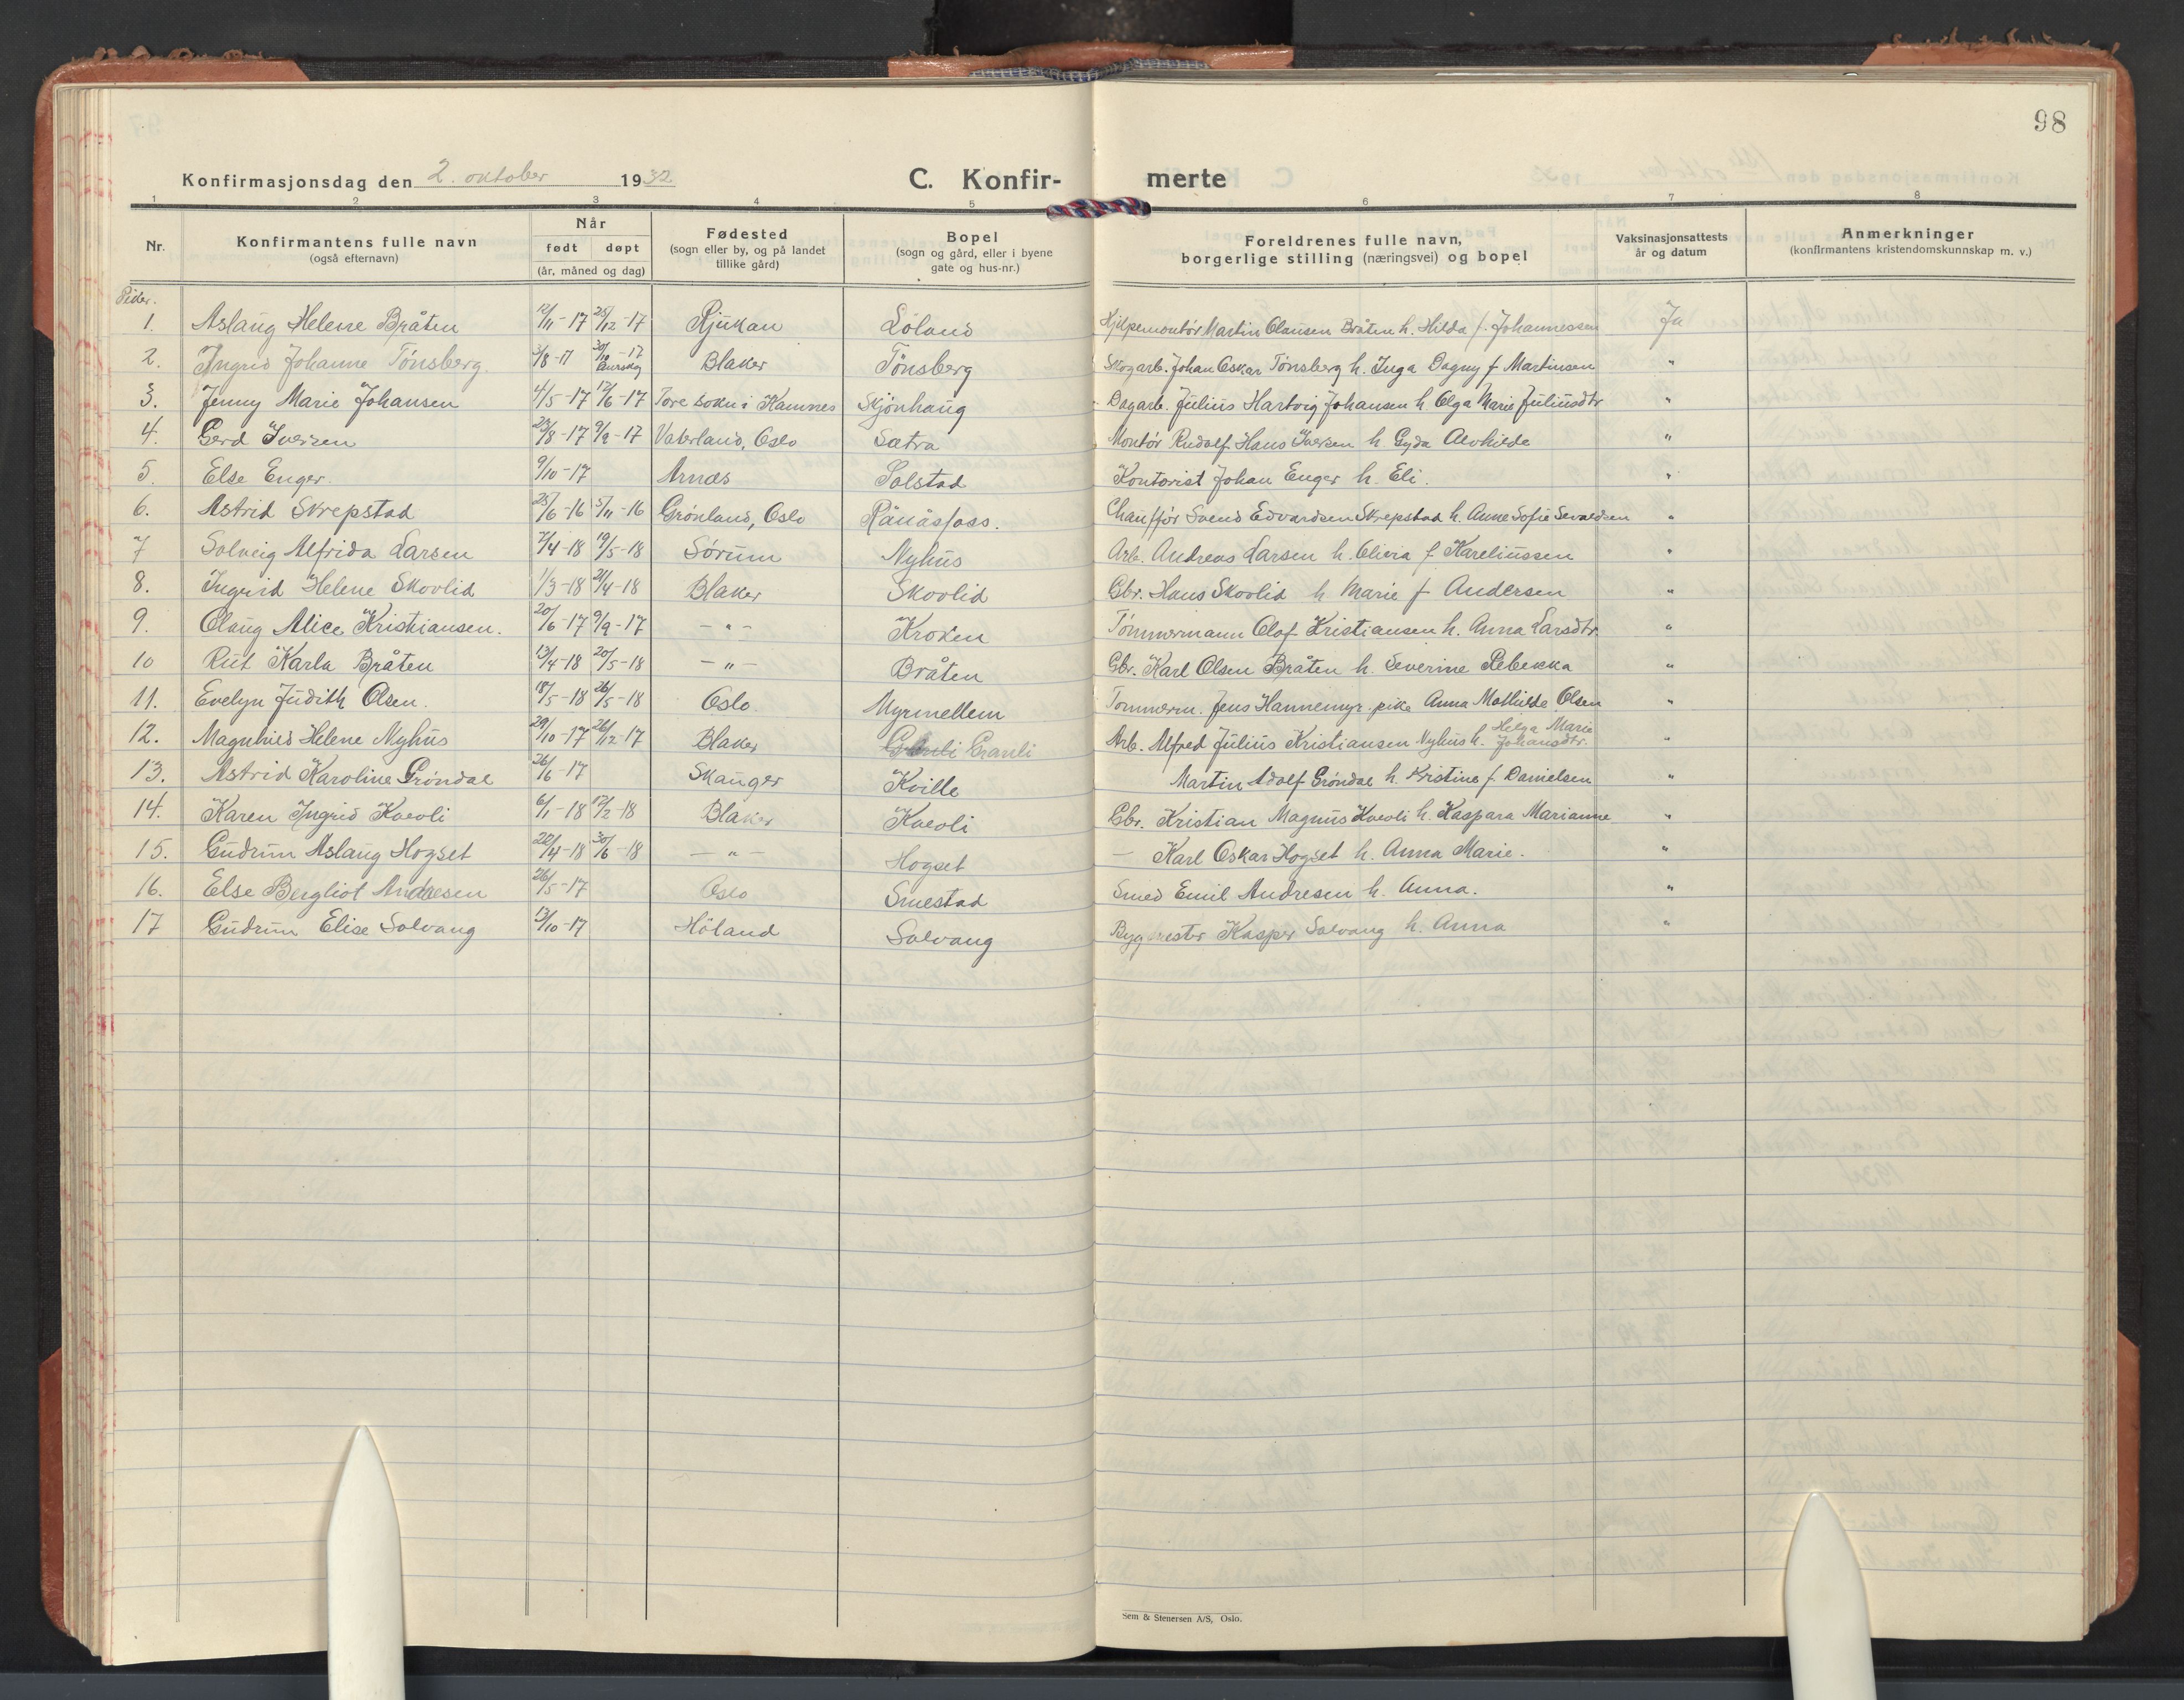 98
Konfirmasjonsdag den 2. oktober 1932 C. Konfir- merte
1 2 3 4 5 6 7 8
Nr. Konfirmantens fulle navn (også efternavn) Når født døpt (år, måned og dag) Fødested (sogn eller by, og på landet tillike gård) Bopel (sogn og gård, eller i byene gate og hus-nr.) Foreldrenes fulle navn, borgerlige stilling (næringsvei) og bopel Vaksinasjonsattests år og datum Anmerkninger (konfirmantens kristendomskunnskap m. v.)
Piker.
1. Aslaug Helene Bråten 12/11-17 25/12-17 Rjukan Løland Hjelpemontör Martin Olausen Bråten h. Hilda f. Johannessen Ja
2. Ingrid Johanne Tønsberg. 3/8-17 30/10-17 Aurskog Blaker Tønsberg Skogarb. Johan Oskar Tønsberg h. Inga Dagny f. Martinsen "
3. Jenny Marie Johansen 4/5-17 17/6-17 Tore sokn i Hamnes Skjönhaug Dagarb. Julius Hartvig Johansen h. Olga Marie Juliusdtr "
4. Gerd Iversen 23/8-17 9/9-17 Vaterland, Oslo Sætra Montör Rudolf Hans Iversen h. Gyda Alvhilde "
5. Else Enger. 9/10-17 Arnæs Solstad Kontorist Johan Enger h. Eli. "
6. Astrid Skrepstad 25/6-16 5/11-16 Grønland, Oslo Rånåsfoss. Chauffør Svend Edvardsen Skrepstad h. Anne Sofie Sevaldsen "
7 Solveig Alfrida Larsen 7/4-18 19/5-18 Sørum Nyhus Arb. Andreas Larsen h. Olivia f. Kareliussen "
8. Ingrid Helene Skovlid 1/3-18 21/4-18 Blaker Skovlid Gbr. Hans Skovlid h Marie f Andersen "
9. Olaug Alice Kristiansen. 20/6-17 9/9-17 - " - Kroken Tømmermann Olaf Kristiansen h. Anna Larsdtr. "
10 Rut Karla Bråten 13/4-18 20/5-18 - " - Bråten Gbr. Karl Olsen Bråten h. Severine Rebekka "
11. Evelyn Judith Olsen. 18/5-18 26/5-18 Oslo. Myrmellem Tømmerm. Jens Hannemyr. pike Anna Mathilde Olsen "
12. Magnhild Helene Nyhus 29/10-17 26/12-17 Blaker Granli Arb. Alfred Julius Kristiansen Nyhus h. Helga Marie Johansdtr. "
13. Astrid Karoline Grøndal 26/6-17 Skauger Kville Martin Adolf Grøndal h. Kristine f. Danielsen "
14. Karen Ingrid Kvevli 6/1-18 17/2-18 Blaker Kvevli Gbr. Kristian Magnus Kvevli h. Kaspara Marianne "
15. Gudrun Aslaug Hogset 22/4-18 30/6-18 - " - Hogset - Karl Oskar Hogset h. Anna Marie. "
16. Else Bergliot Andresen 26/5-17 Oslo Smestad Smed Emil Andresen h. Anna. "
17 Gudrun Elise Solvang 13/10-17 Høland Solvang Bygmester Kasper Solvang h. Anna "
Sem & Stenersen A/S, Oslo.